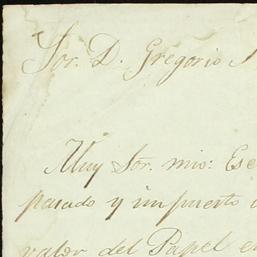 Sor. D. Gregorio
Muy Sor. mio: Ese
pasado y impuesto
valor del Papel en